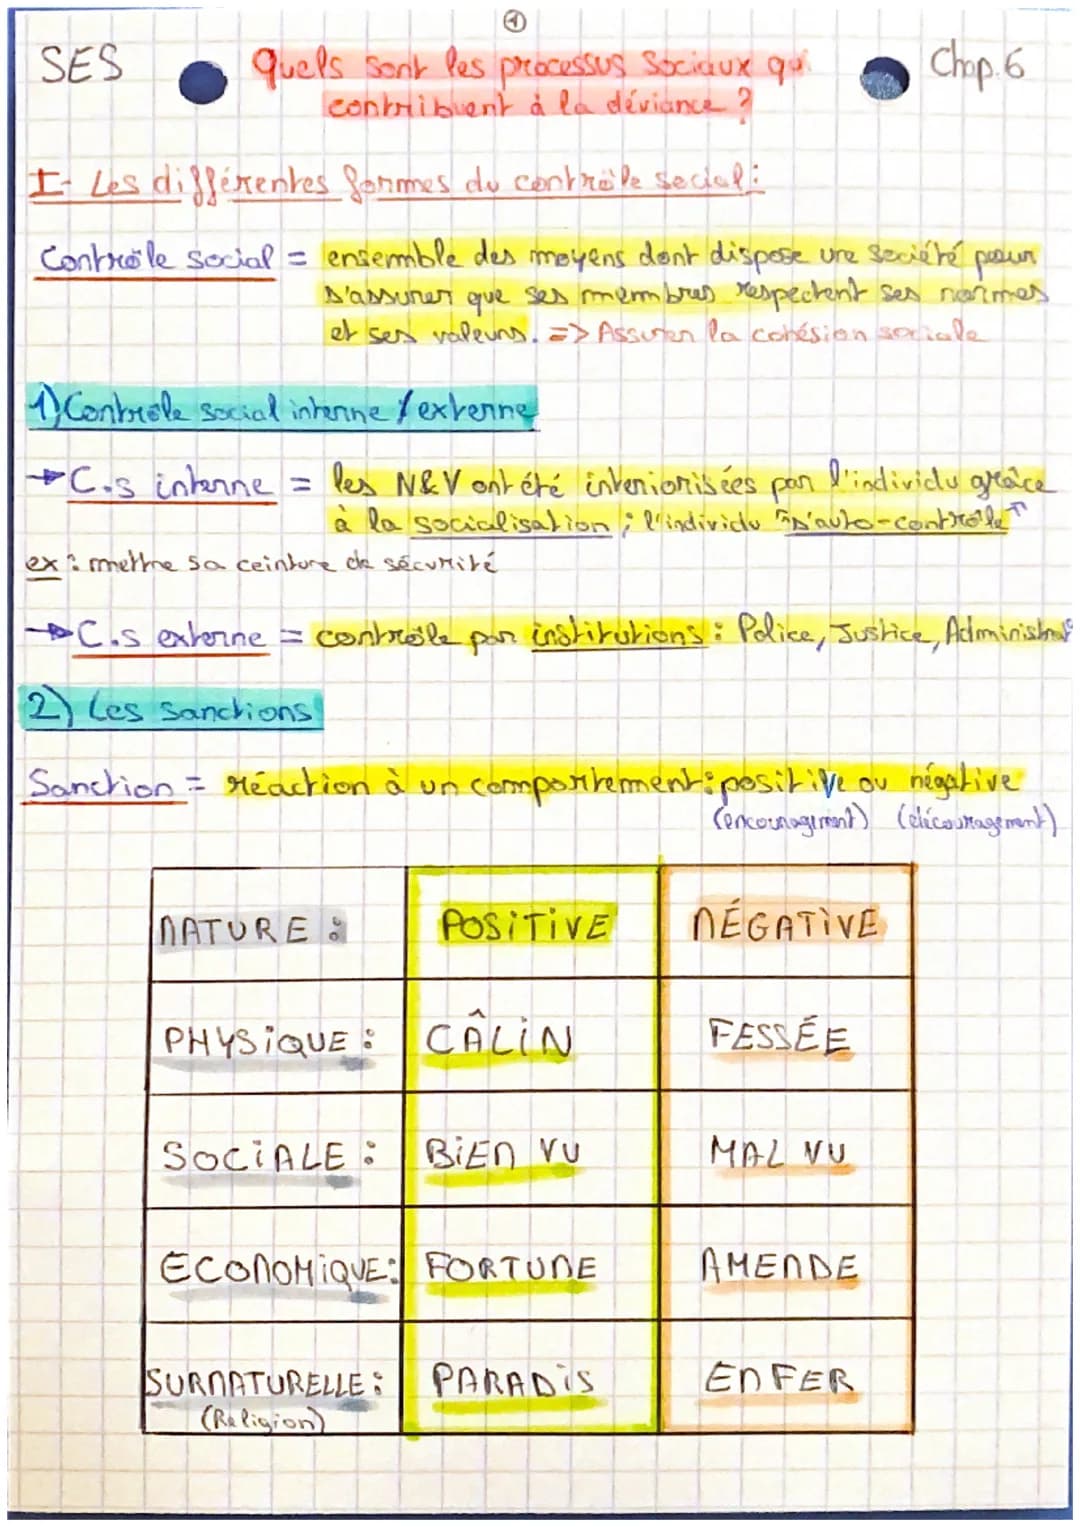 ①
SES
Quels sont les processus sociaux qui
Chap.6
contribuent à la déviance ?
I- Les différentes formes du contrôle social :
Contrôle social = ensemble des moyens dont dispose une société pour
s'assurer que ses membres respectent ses normes
et ses valeurs. => Assurer la cohésion sociale
1) Contrôle social interne / externe
→ C.s interne = les N&V ont été interiorisées par l'individu grâce
à la socialisation ; l'individu "s'auto-contrôle"
ex : mettre sa ceinture de sécurité
→ C.s externe = contrôle par institutions : Police, Justice, Administrat°
2) Les sanctions
Sanction = réaction à un comportement : positive ou négative
(encouragement) (découragement)
NATURE : POSITIVE NÉGATIVE
PHYSIQUE : CÂLIN FESSÉE
SOCIALE : BIEN VU MAL VU
ECONOMIQUE : FORTUNE AMENDE
SURNATURELLE : PARADIS ENFER
(Religion)